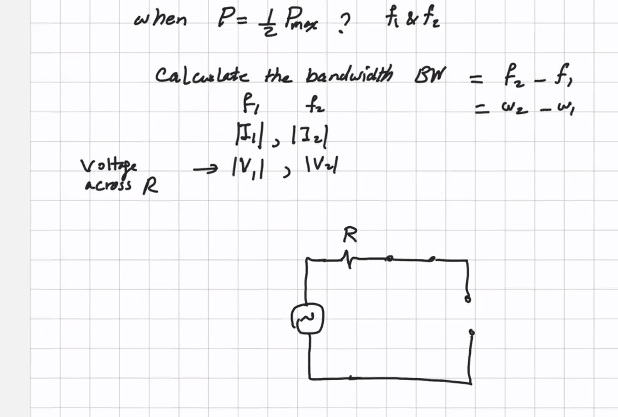 when P = 1/2 Pmax ? f₁ & f₂
Calculate the bandwidth BW = f₂ - f₁
= ω₂ - ω₁
f₁ f₂
|I₁| , |I₂|
Voltage across R → |V₁| , |V₂|
R
~